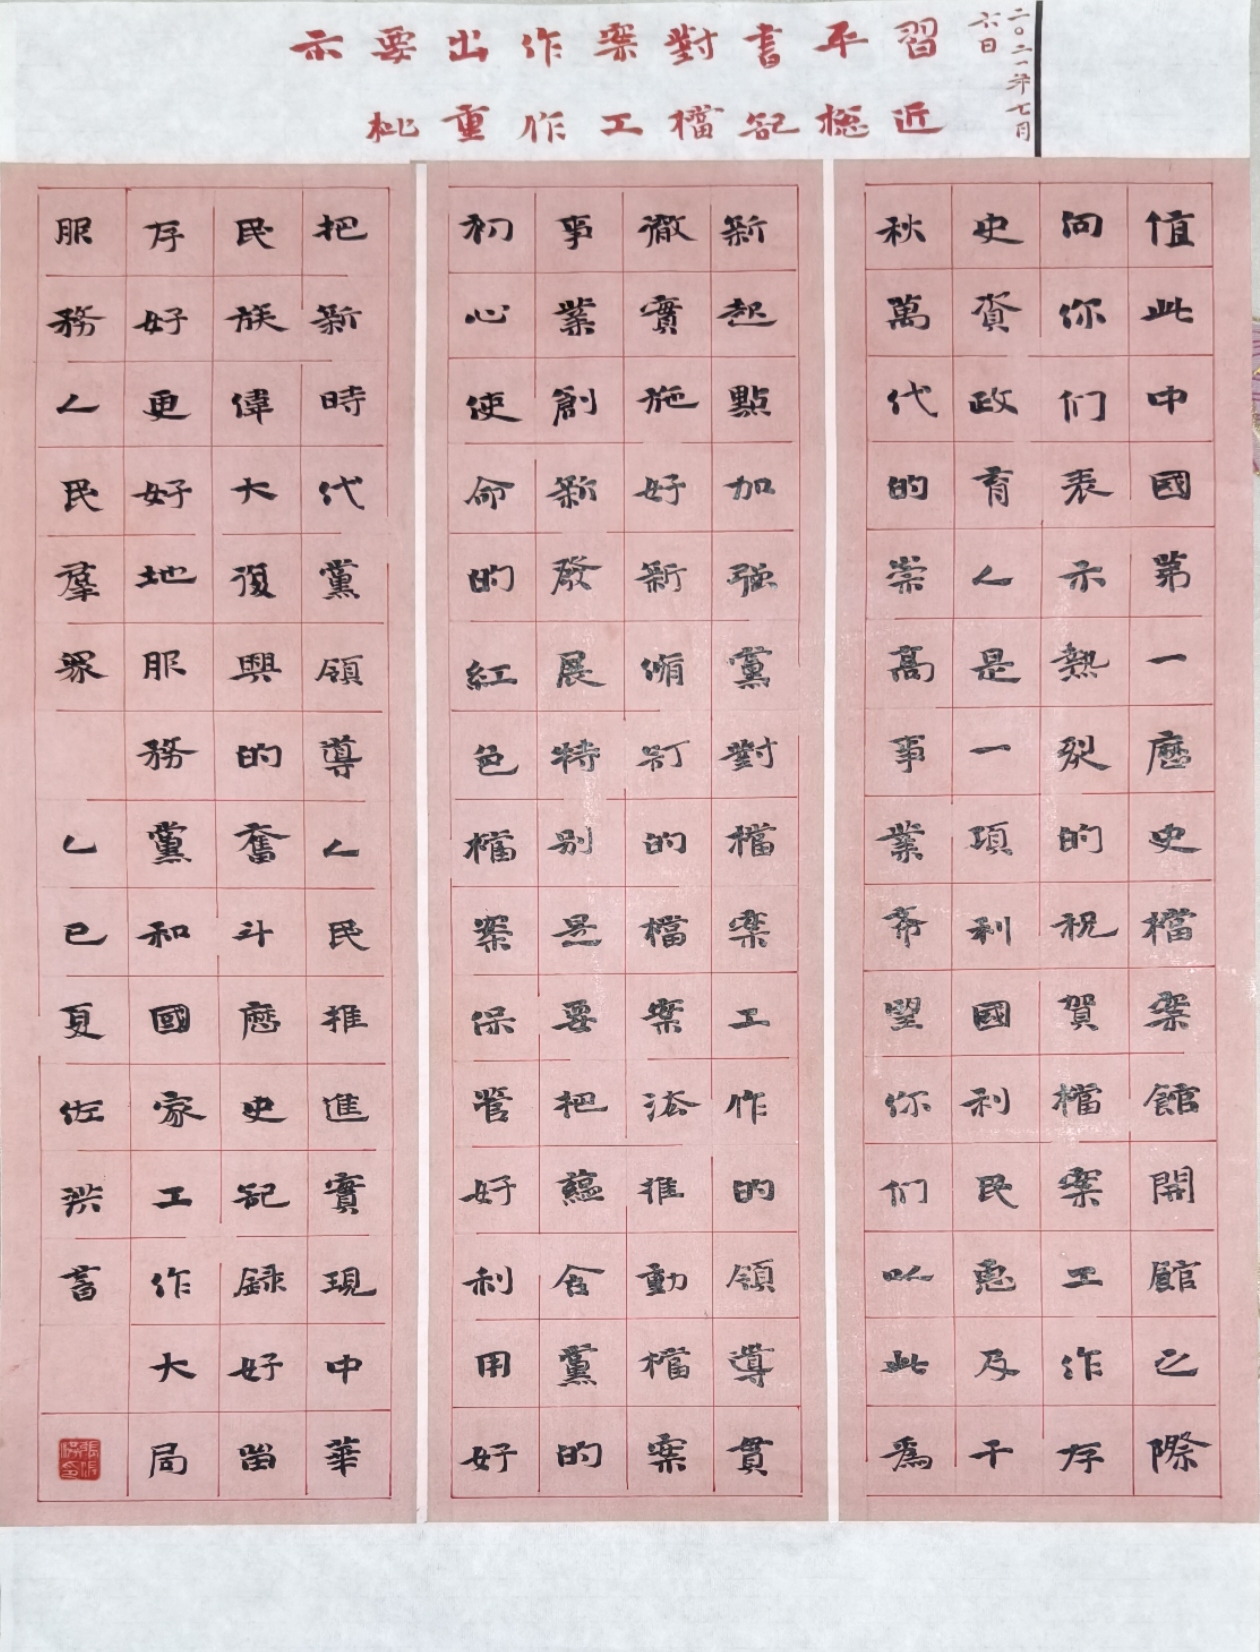 二〇二一年七月
六日
習近
平總
書記
對檔
案工
作作
出重
要批
示
值此中國第一歷史檔案館開館之際
向你们表示熱烈的祝賀檔案工作存
史資政育人是一項利國利民惠及千
秋萬代的崇高事業希望你们以此為
新起點加强黨對檔案工作的領導貫
徹實施好新修訂的檔案法推動檔案
事業創新發展特别是要把蘊含黨的
初心使命的紅色檔案保管好利用好
把新時代黨領導人民推進實現中華
民族偉大復興的奮斗歷史記録好留
存好更好地服務黨和國家工作大局
服務人民羣眾 乙巳夏佐洪書